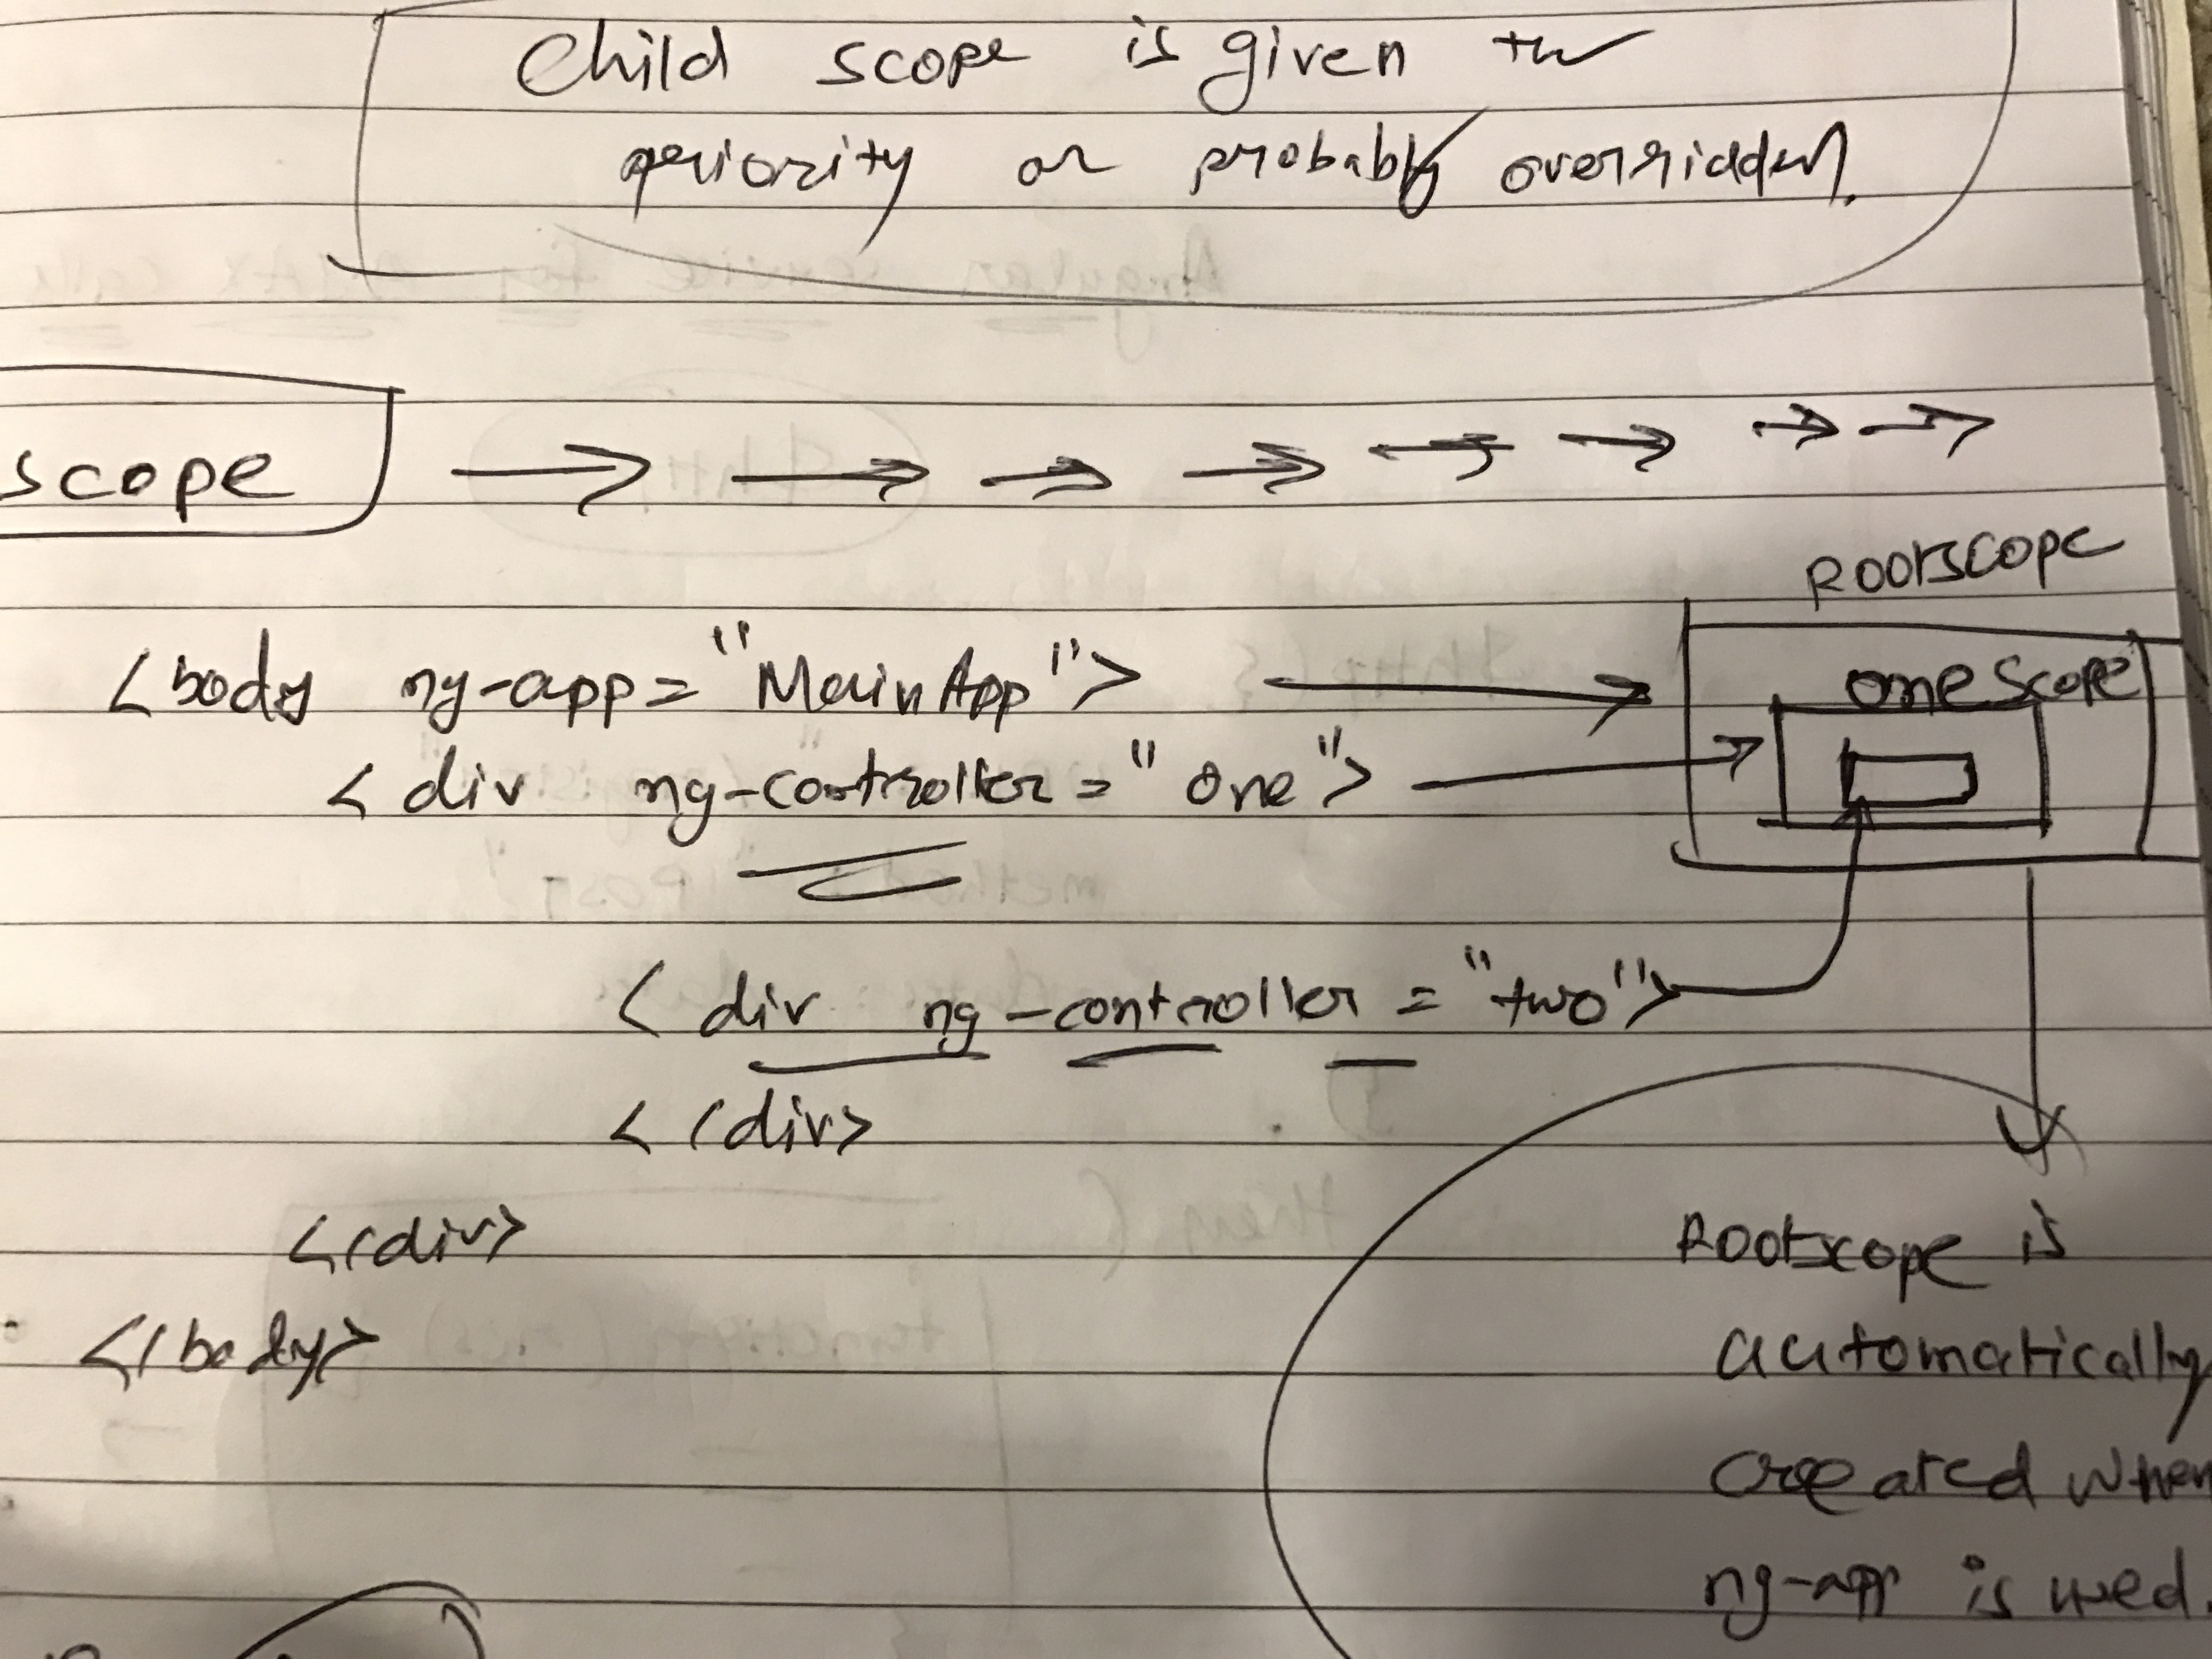 Child scope is given the
periority or probably overridden.
scope
Rootscope
<body ng-app="MainApp">
onescope
<div ng-controller="one">
<div ng-controller="two">
</div>
</div>
</body>
Rootscope is
automatically
created when
ng-app is used.